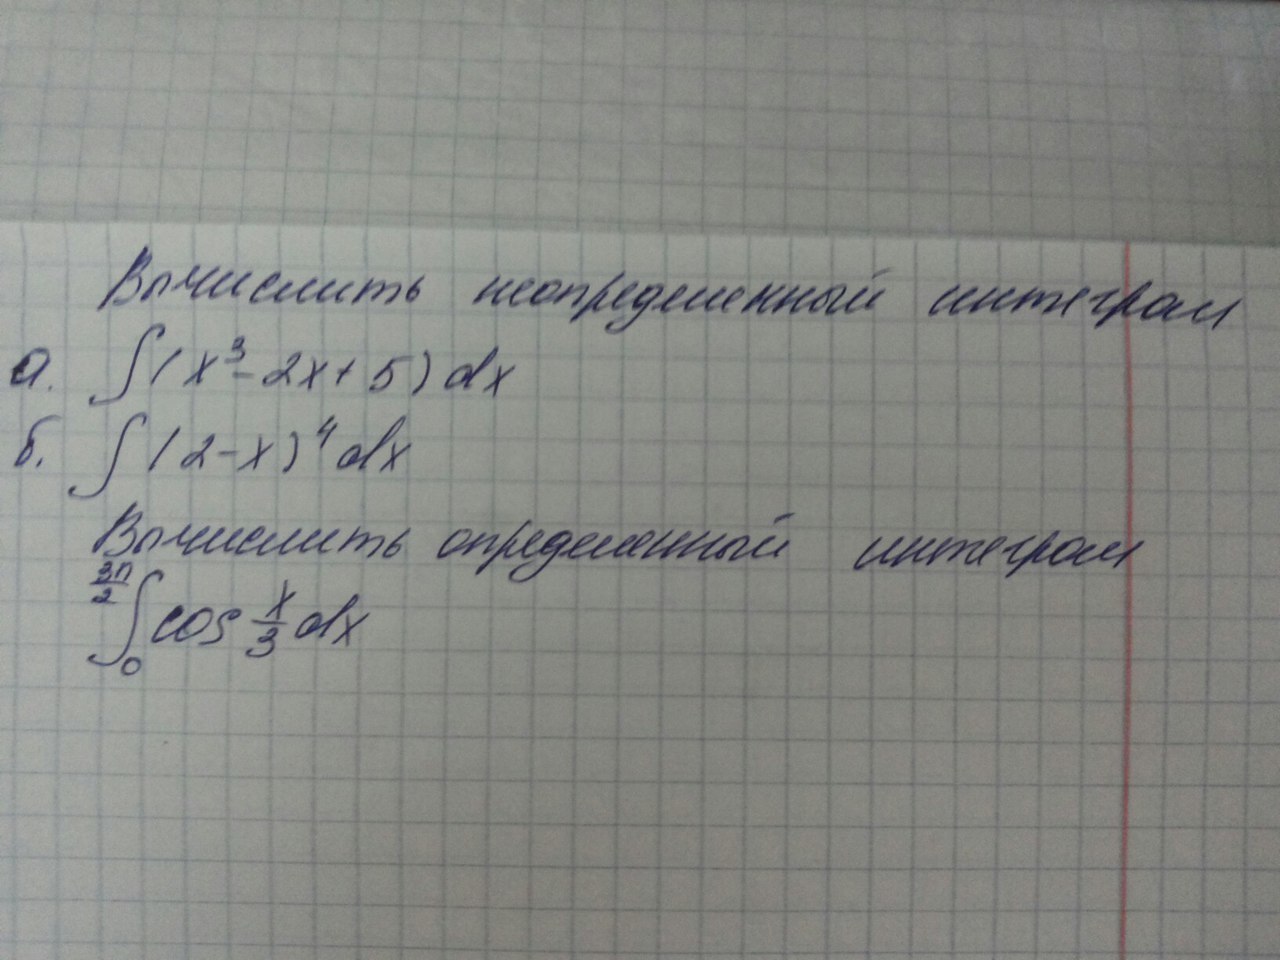 Вычислить неопределенный интеграл
а. ∫(x³-2x+5)dx
б. ∫(2-x)⁴dx
Вычислить определенный интеграл
3π/2 ∫ 0 cos x/3 dx